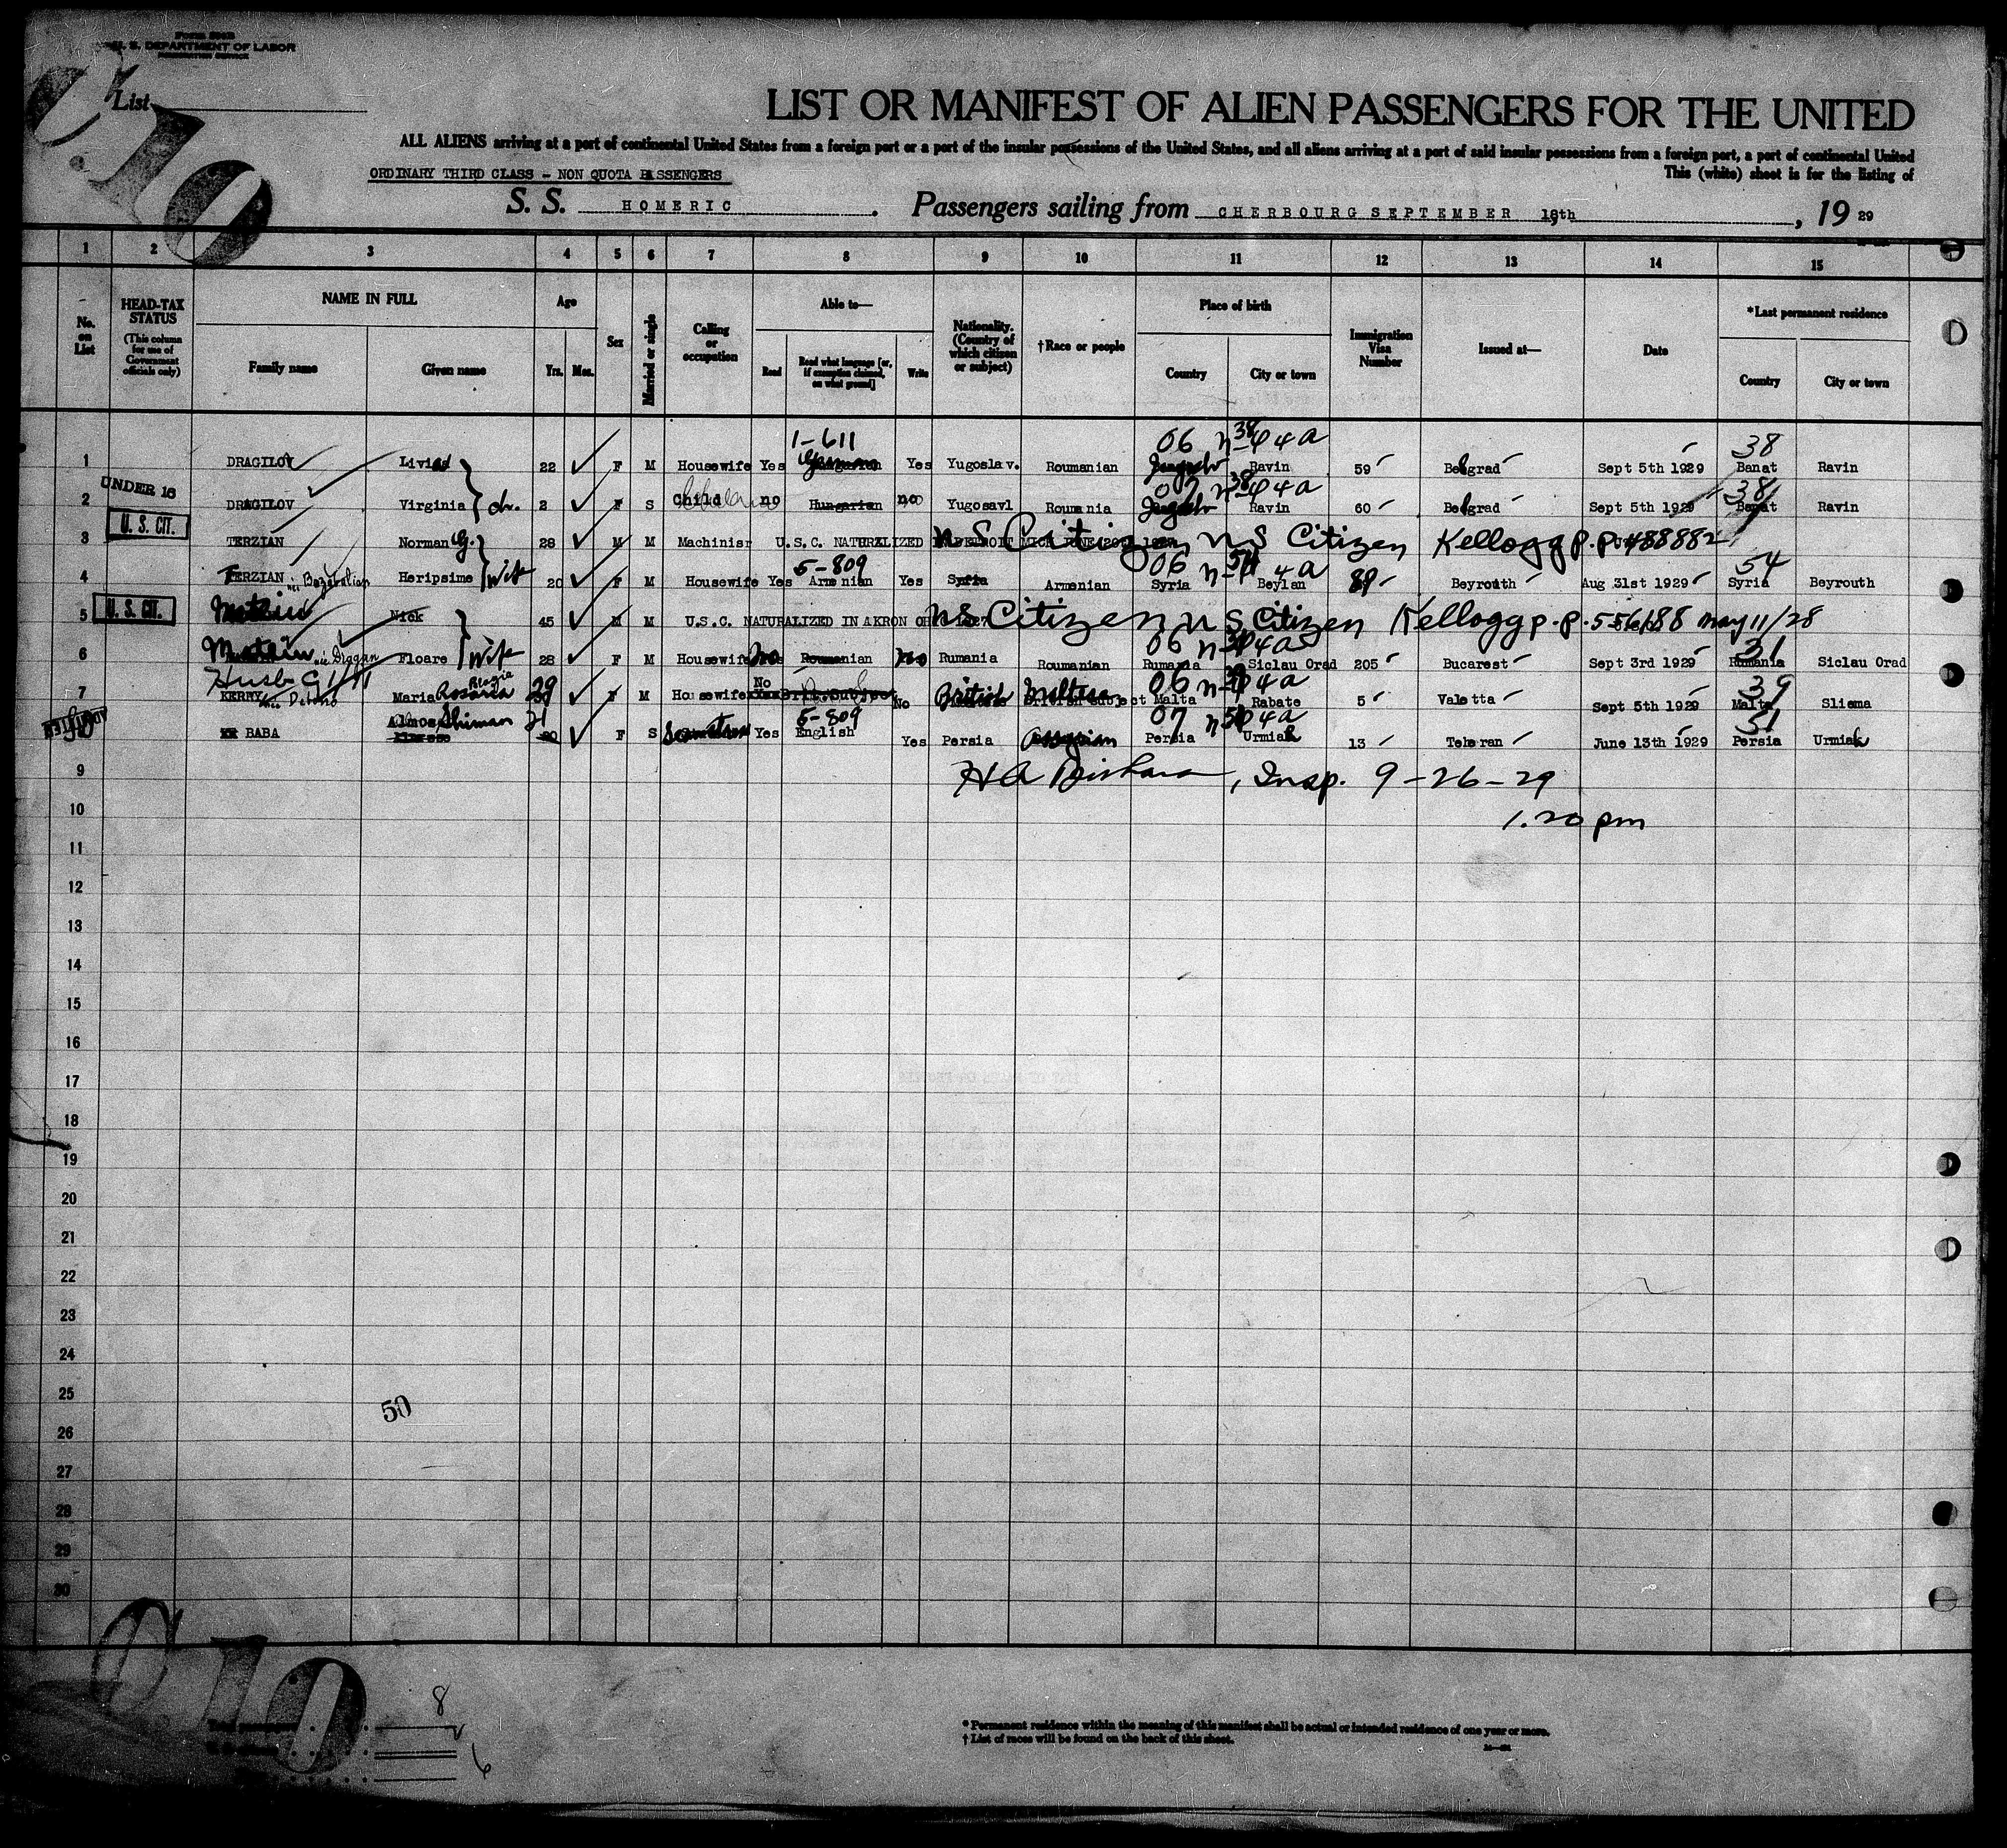 U. S. DEPARTMENT OF LABOR
List
LIST OR MANIFEST OF ALIEN PASSENGERS FOR THE UNITED
ALL ALIENS arriving at a port of continental United States from a foreign port or a port of the insular possessions of the United States, and all aliens arriving at a port of said insular possessions from a foreign port, a port of continental United
ORDINARY THIRD CLASS - NON QUOTA PASSENGERS This (white) sheet is for the listing of
S. S. HOMERIC. Passengers sailing from CHERBOURG SEPTEMBER 18th, 19 29
1 2 3 4 5 6 7 8 9 10 11 12 13 14 15
No. on List
HEAD-TAX STATUS (This column for use of Government officials only)
NAME IN FULL
Family name Given name
Age
Yrs. Mos.
Sex
Married or single
Calling or occupation
Able to—
Read
Read what language [or, if exemption claimed, on what ground]
Write
Nationality. (Country of which citizen or subject)
†Race or people
Place of birth
Country City or town
Immigration Visa Number
Issued at—
Date
*Last permanent residence
Country City or town
1-611 06 38 4a 38
1 DRAGILOV 22 F M Housewife Yes German Yes Yugoslav. Roumanian Ravin 59 Belgrad Sept 5th 1929 Banat Ravin
UNDER 16
2 DRAGILOV Virginia 2 F S Child no Hungarian no Yugosavl Roumania Ravin 60 Belgrad Sept 5th 1929 Banat Ravin
U. S. CIT.
3 TERZIAN Norman G. 28 M M Machinisr U.S.C. NATURALIZED U S Citizen U S Citizen Kellogg p.p. 488882
5-809 06 4a 54
4 TERZIAN Heripsime Wife 20 F M Housewife Yes Armenian Yes Syria Armenian Syria Beylan 89 Beyrouth Aug 31st 1929 Syria Beyrouth
U. S. CIT.
5 Nick 45 M M U.S.C. NATURALIZED IN AKRON U S Citizen U S Citizen Kellogg p.p. 556188 May 11/28
06 4a 31
6 Floare Wife 28 F M Housewife no Roumanian no Rumania Roumanian Rumania Siclau Orad 205 Bucarest Sept 3rd 1929 Rumania Siclau Orad
7 KERRY Maria Rosaria 29 F M Housewife No Brit. Subject No British Maltese Malta Rabate 5 Valetta Sept 5th 1929 Malta Sliema
5-809 07 4a 51
BABA Shiman 21 F S Seamstress Yes English Yes Persia Assyrian Persia Urmiah 13 Teheran June 13th 1929 Persia Urmiah
9 Insp. 9-26-29
10 1.20 pm
11
12
13
14
15
16
17
18
19
20
21
22
23
24
25
50
26
27
28
29
30
8
6
* Permanent residence within the meaning of this manifest shall be actual or intended residence of one year or more.
† List of races will be found on the back of this sheet.